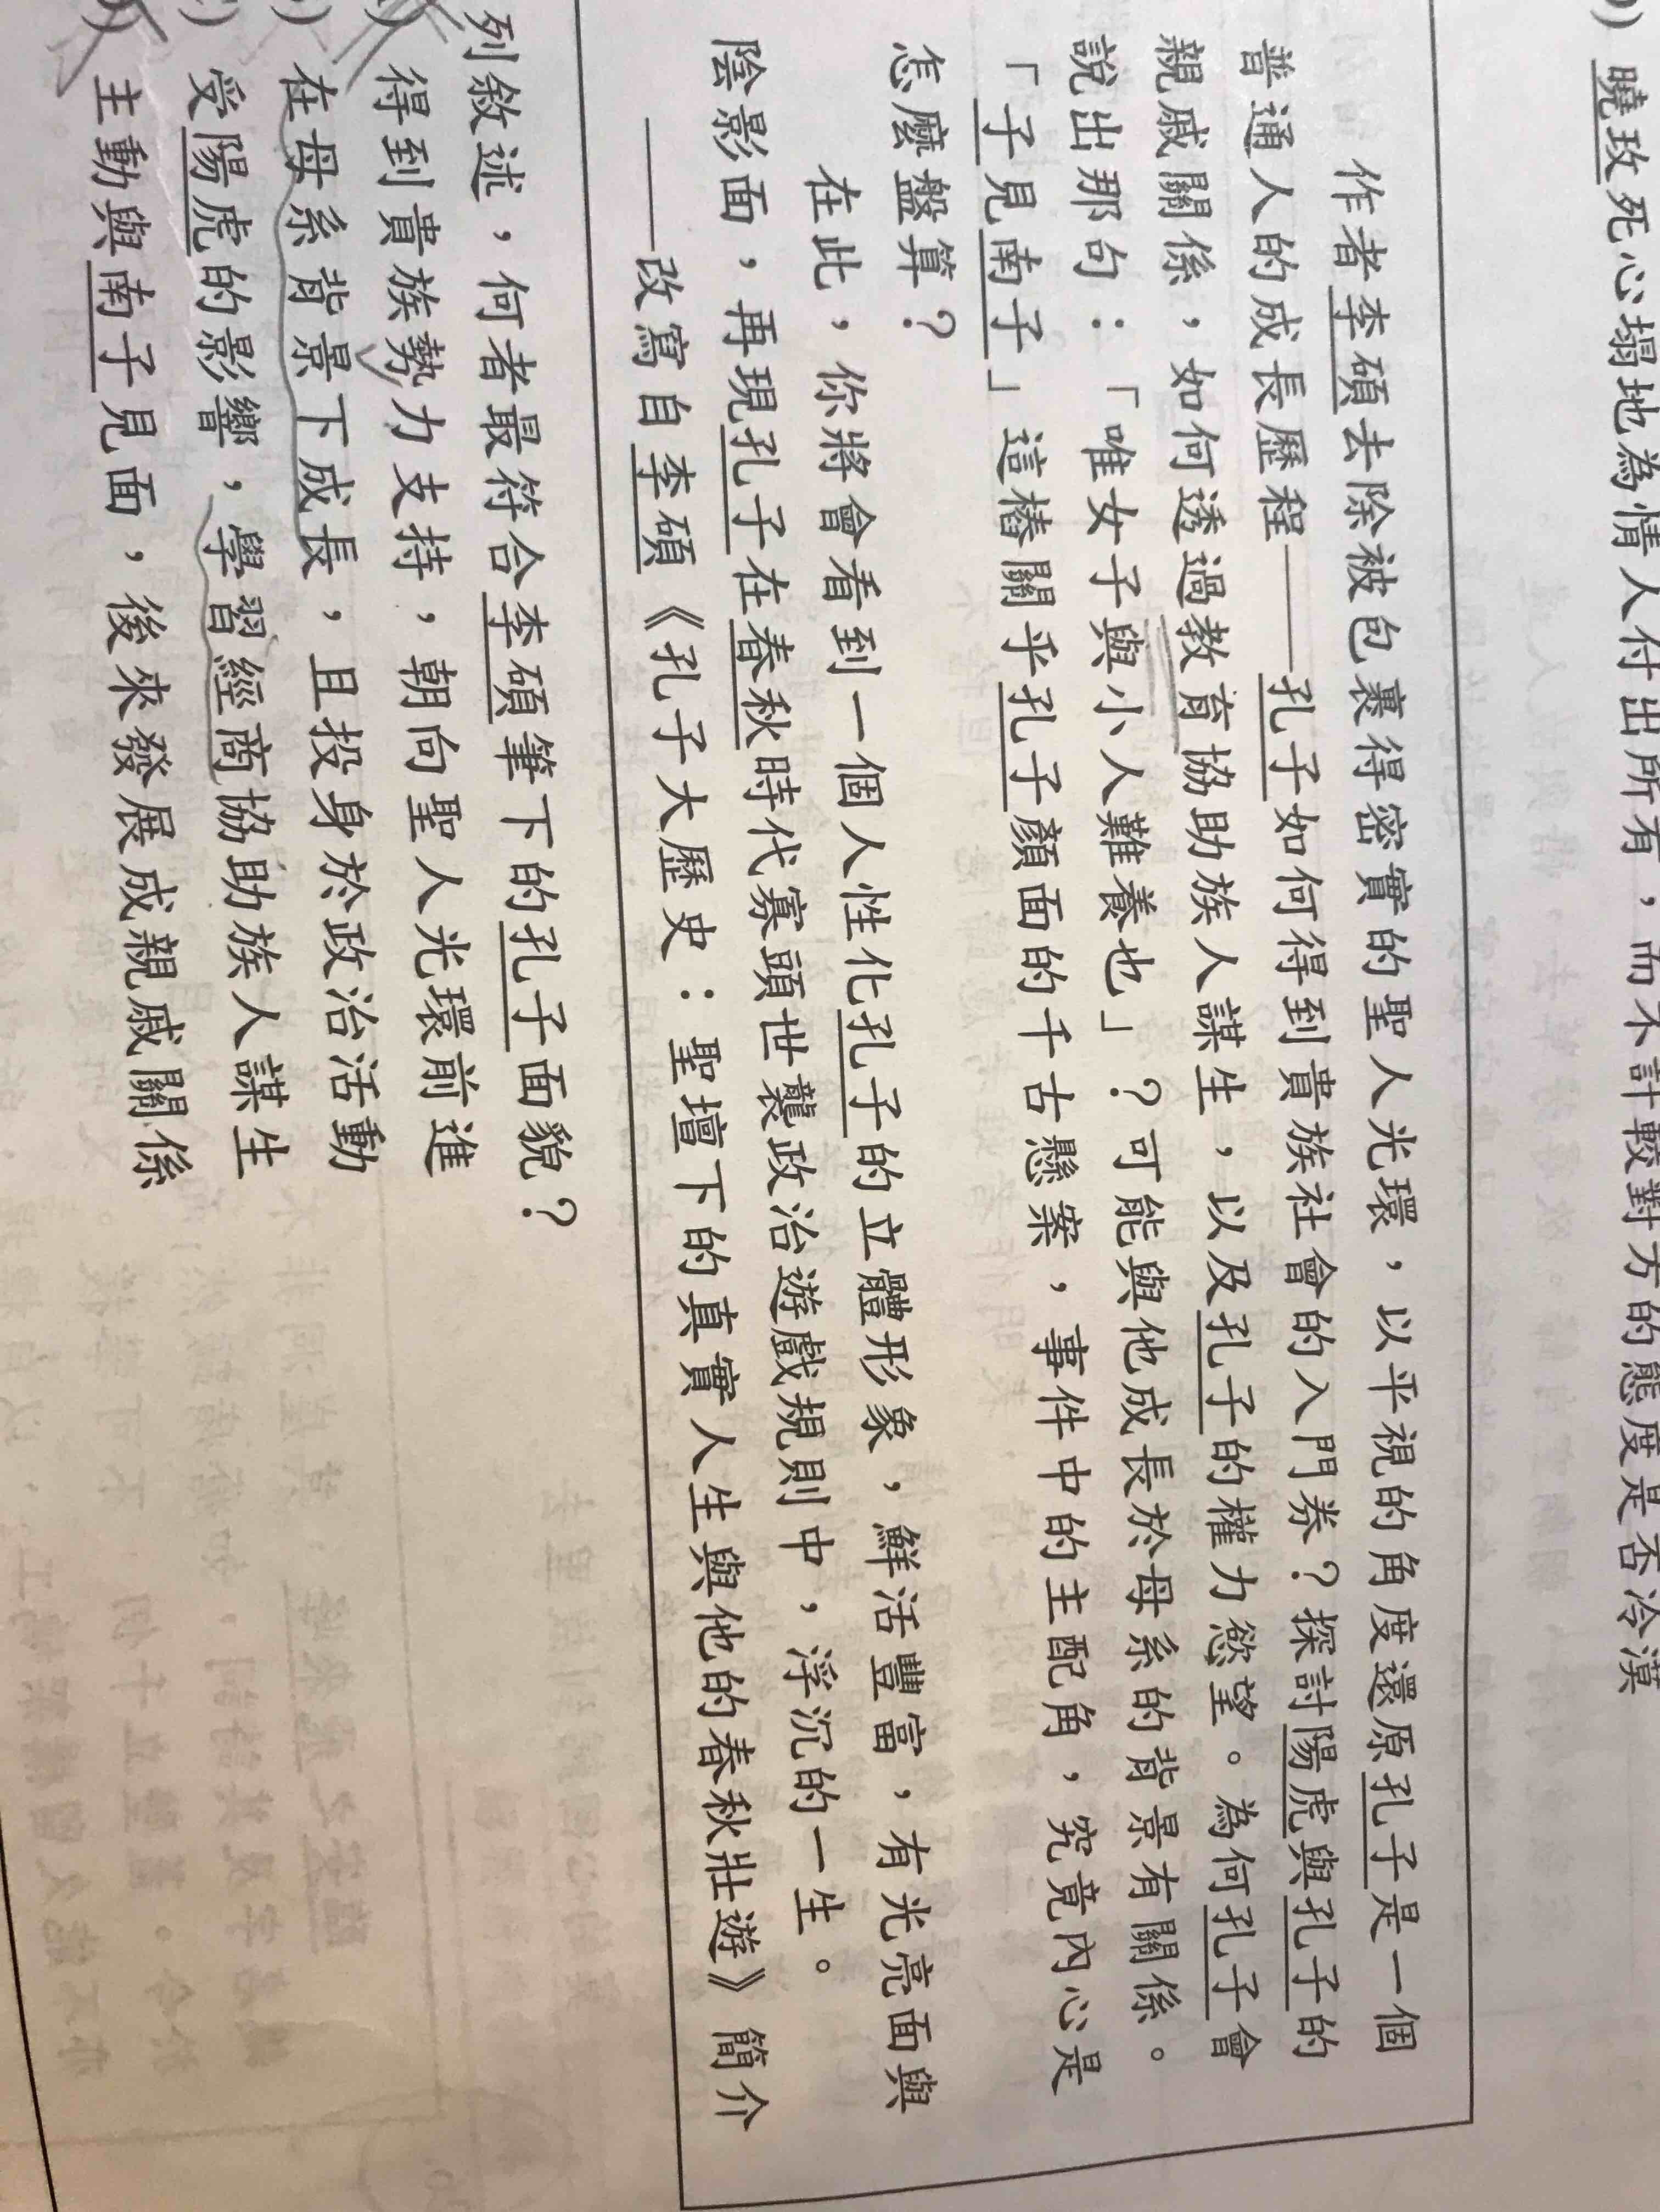 曉玫死心塌地為情人付出所有，而不計較對方的態度是否冷漠
作者李碩去除被包裹得密實的聖人光環，以平視的角度還原孔子是一個
普通人的成長歷程——孔子如何得到貴族社會的入門券？探討陽虎與孔子的
親戚關係，如何透過教育協助族人謀生，以及孔子的權力慾望。為何孔子會
說出那句：「唯女子與小人難養也」？可能與他成長於母系的背景有關係。
「子見南子」這樁關乎孔子顏面的千古懸案，事件中的主配角，究竟內心是
怎麼盤算？
在此，你將會看到一個人性化孔子的立體形象，鮮活豐富，有光亮面與
陰影面，再現孔子在春秋時代寡頭世襲政治遊戲規則中，浮沉的一生。
——改寫自李碩《孔子大歷史：聖壇下的真實人生與他的春秋壯遊》簡介
列敘述，何者最符合李碩筆下的孔子面貌？
得到貴族勢力支持，朝向聖人光環前進
在母系背景下成長，且投身於政治活動
受陽虎的影響，學習經商協助族人謀生
主動與南子見面，後來發展成親戚關係